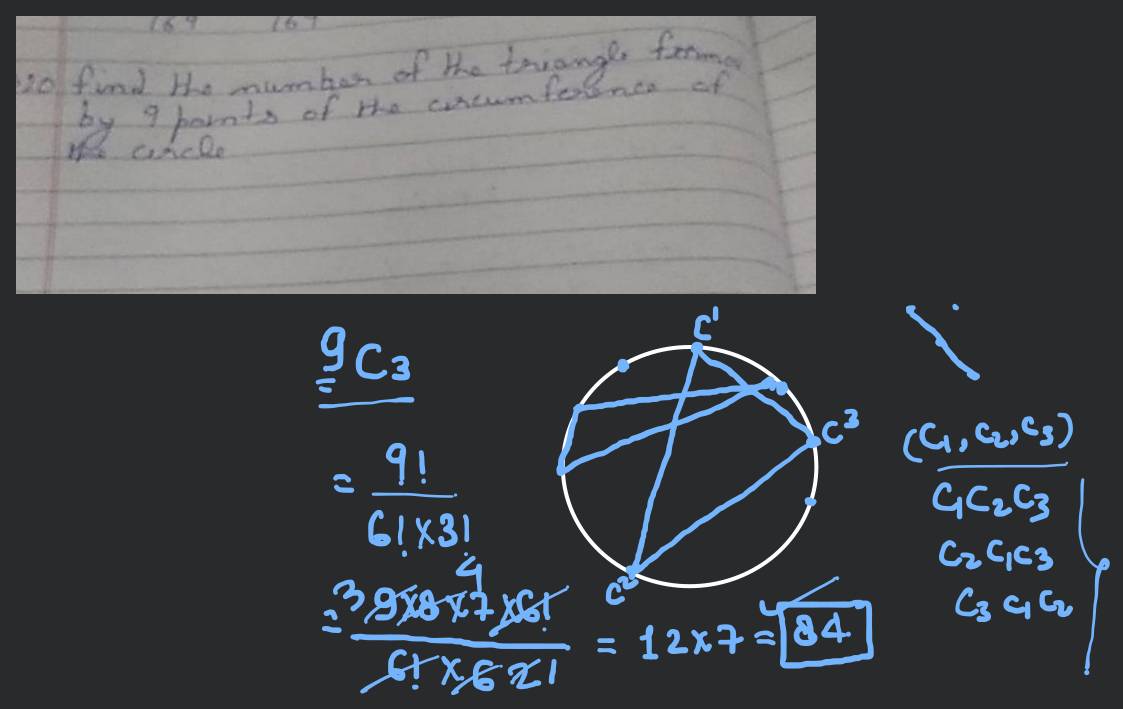 169 169
20 find the number of the triangle forma
by 9 points of the circumference of
the circle
9C3
= 9!
6!×3!
= 3 9×8×7×6! 4
6!×6 2 1
= 12×7 = 84
C1
C3
C2
(C1, C2, C3)
C1C2C3
C2C1C3
C3C1C2